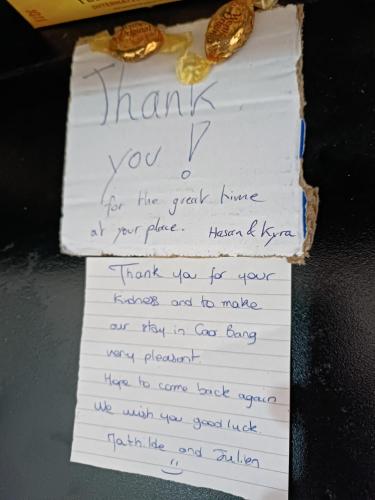 Original
Thank
you!
for the great time
at your place. Hasan & Kyra
Thank you for your
Kindness and to make
our stay in Cao Bang
very pleasant.
Hope to come back again
We wish you good luck.
Mathilde and Julien